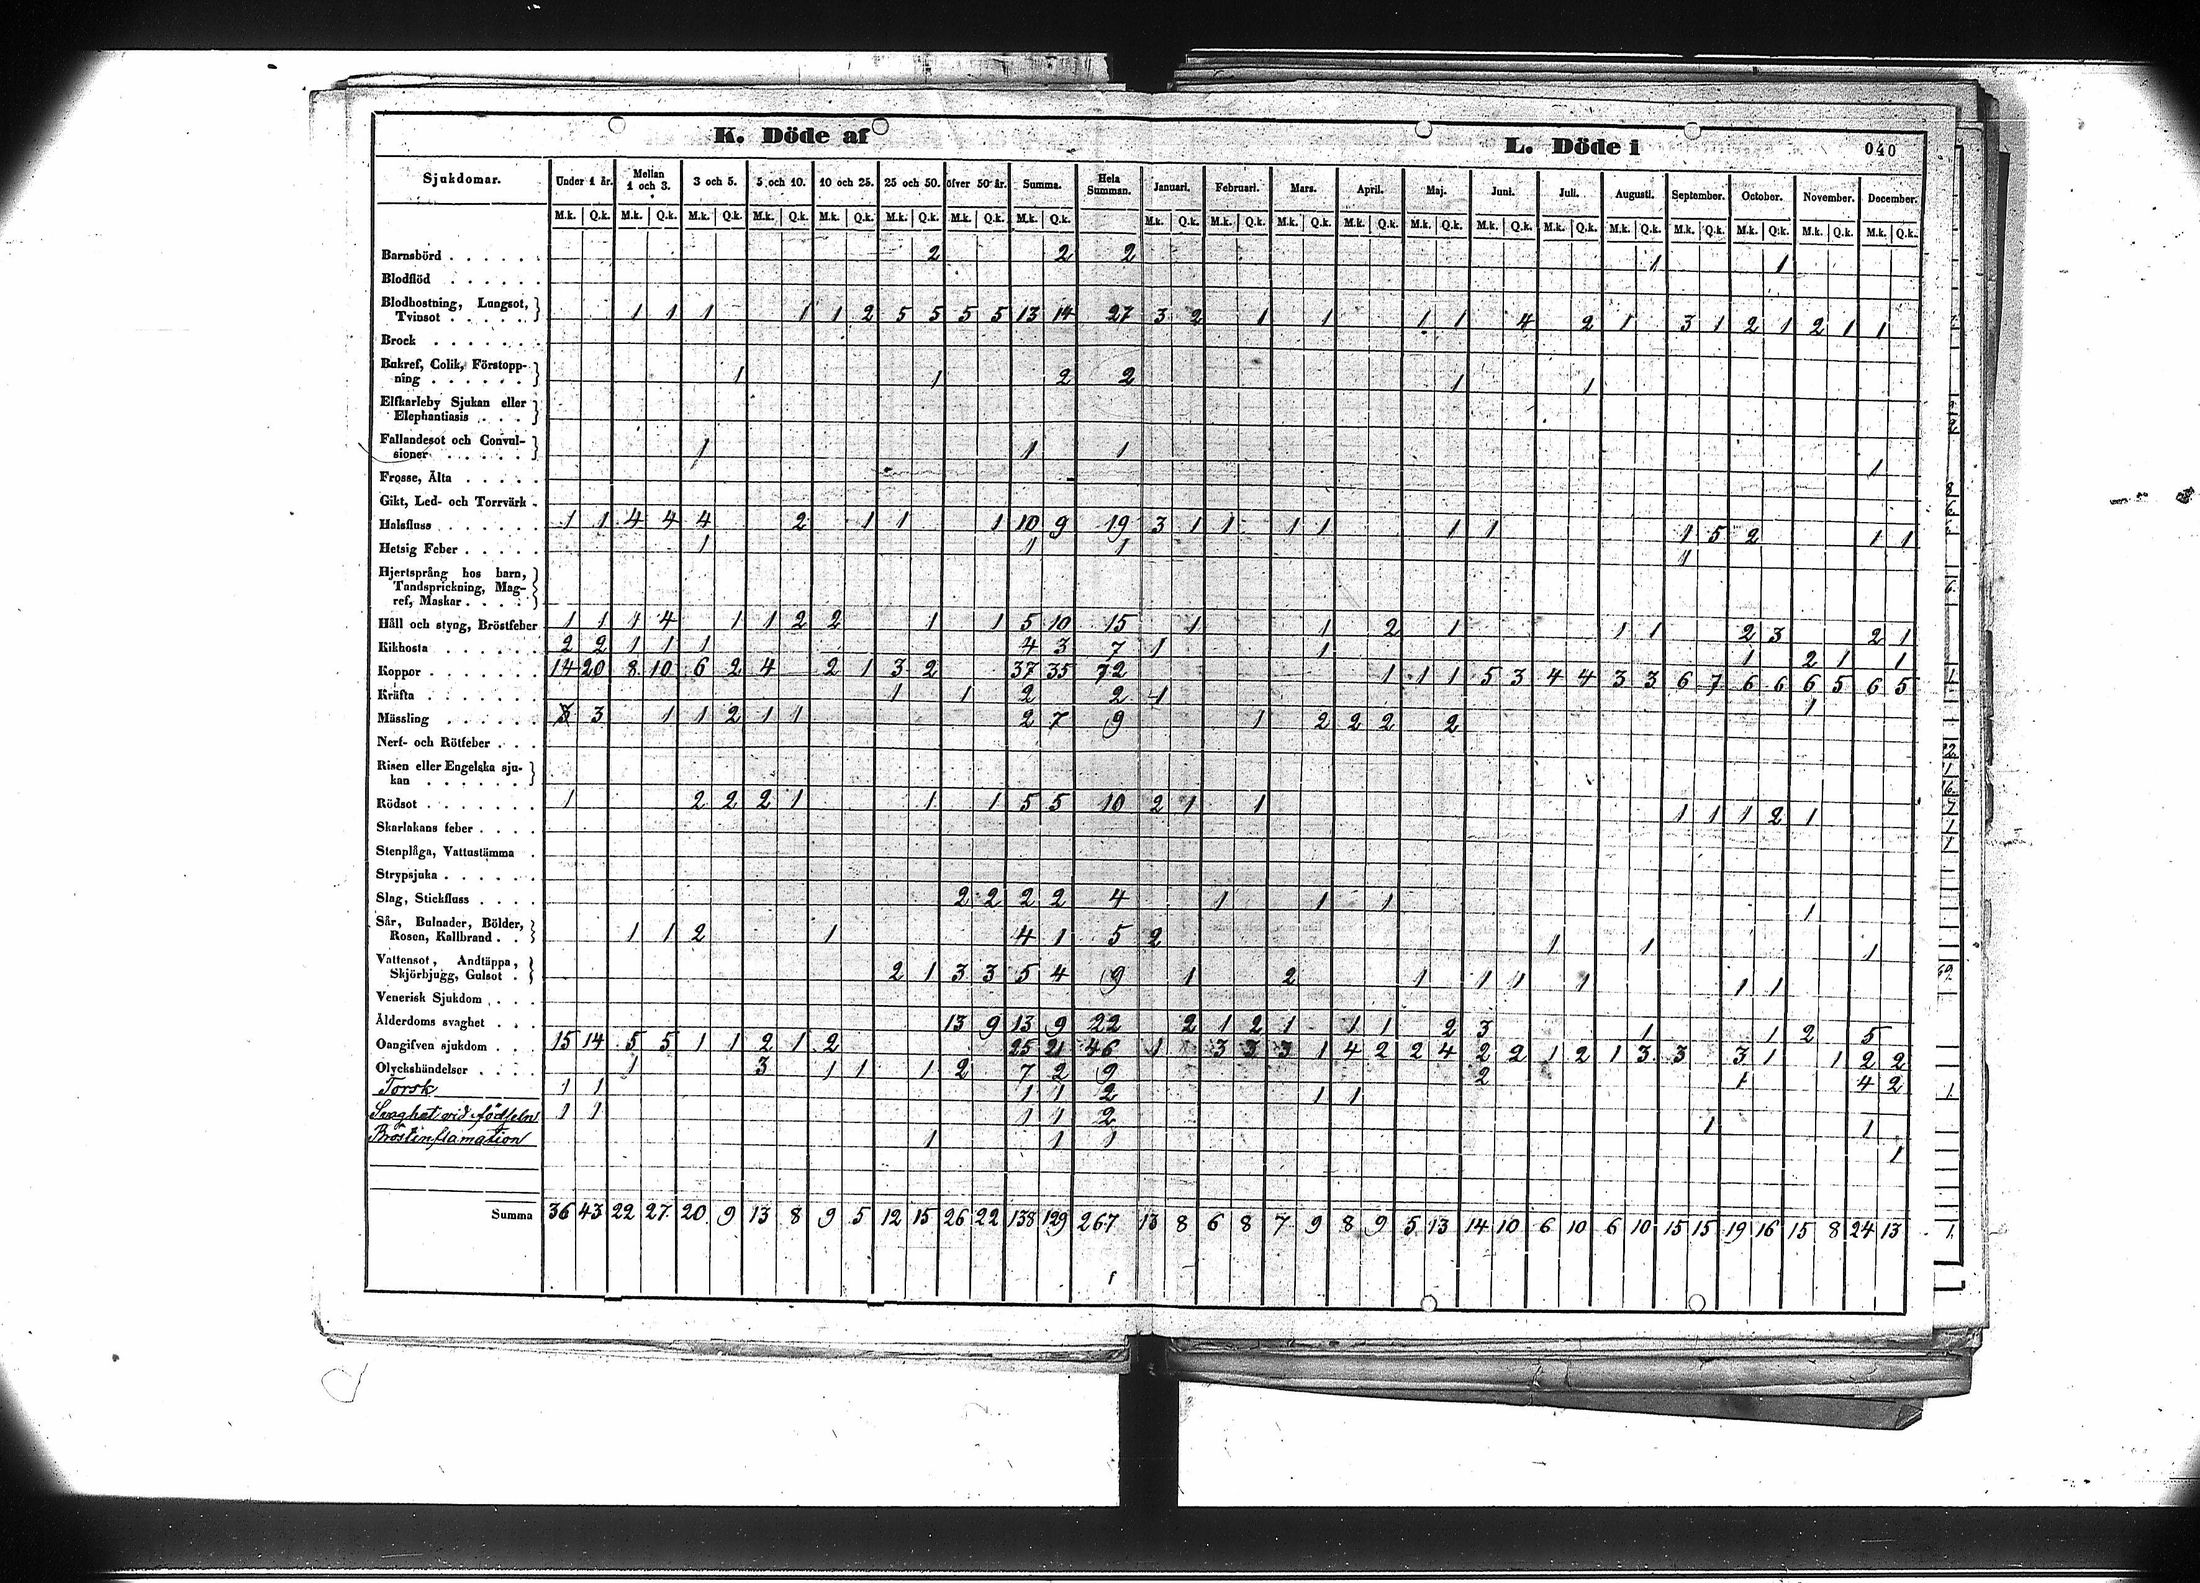 K. Döde af
L. Döde i 040
Sjukdomar. Under 1 år. Mellan 1 och 3. 3 och 5. 5 och 10. 10 och 25. 25 och 50. öfver 50 år. Summa. Hela Summan. Januari. Februari. Mars. April. Maj. Juni. Juli. Augusti. September. October. November. December.
M.k. Q.k. M.k. Q.k. M.k. Q.k. M.k. Q.k. M.k. Q.k. M.k. Q.k. M.k. Q.k. M.k. Q.k. M.k. Q.k. M.k. Q.k. M.k. Q.k. M.k. Q.k. M.k. Q.k. M.k. Q.k. M.k. Q.k. M.k. Q.k. M.k. Q.k. M.k. Q.k. M.k. Q.k. M.k. Q.k.
Barnsbörd . . . . . . 2 2 2 1 1
Blodflöd . . . . . .
Blodhostning, Lungsot,
Tvinsot . . . . . 1 1 1 1 1 2 5 5 5 5 13 14 27 3 2 1 1 1 1 4 2 1 3 1 2 1 2 1 1
Brock . . . . . . .
Bukref, Colik, Förstopp-
ning . . . . . . 1 1 2 2 1 1
Elfkarleby Sjukan eller
Elephantiasis . . .
Fallandesot och Convul-
sioner . . . . . 1 1 1 1
Frosse, Älta . . . . .
Gikt, Led- och Torrvärk .
Halsfluss . . . . . . 1 1 4 4 4 2 1 1 1 10 9 19 3 1 1 1 1 1 1 1 5 2 1 1
Hetsig Feber . . . . . 1 1 1 1
Hjertsprång hos barn,
Tandsprickning, Mag-
ref, Maskar . . . .
Håll och styng, Bröstfeber 1 1 1 4 1 1 2 2 1 1 5 10 15 1 1 2 1 1 1 2 3 2 1
Kikhosta . . . . . . 2 2 1 1 1 4 3 7 1 1 1 2 1 1
Koppor . . . . . . . 14 20 8 10 6 2 4 2 1 3 2 37 35 72 1 1 1 5 3 4 4 3 3 6 7 6 6 6 5 6 5
Kräfta . . . . . . . 1 1 2 2 1 1
Mässling . . . . . . 3 3 1 1 2 1 1 2 7 9 1 2 2 2 2
Nerf- och Rötfeber . . .
Risen eller Engelska sju-
kan . . . . . .
Rödsot . . . . . . . 1 2 2 2 1 1 1 5 5 10 2 1 1 1 1 1 2 1
Skarlakans feber . . . .
Stenplåga, Vattustämma .
Strypsjuka . . . . . .
Slag, Stickfluss . . . . 2 2 2 2 4 1 1 1 1
Sår, Bulnader, Bölder,
Rosen, Kallbrand . . 1 1 2 1 4 1 5 2 1 1 1
Vattensot, Andtäppa,
Skjörbjugg, Gulsot . 2 1 3 3 5 4 9 1 2 1 1 1 1 1 1
Venerisk Sjukdom . . .
Ålderdoms svaghet . . . 13 9 13 9 22 2 1 2 1 1 1 2 3 1 1 2 5
Oangifven sjukdom . . . 15 14 5 5 1 1 2 1 2 25 21 46 1 3 3 3 1 4 2 2 4 2 2 1 2 1 3 3 3 1 1 2 2
Olyckshändelser . . . . 1 3 1 1 1 2 7 2 9 2 1 4 2
Torsk 1 1 1 1 2 1 1
Svaghet vid födseln 1 1 1 1 2 1 1
Bröstinflamation 1 1 1 1
Summa 36 43 22 27 20 9 13 8 9 5 12 15 26 22 138 129 267 13 8 6 8 7 9 8 9 5 13 14 10 6 10 6 10 15 15 19 16 15 8 24 13